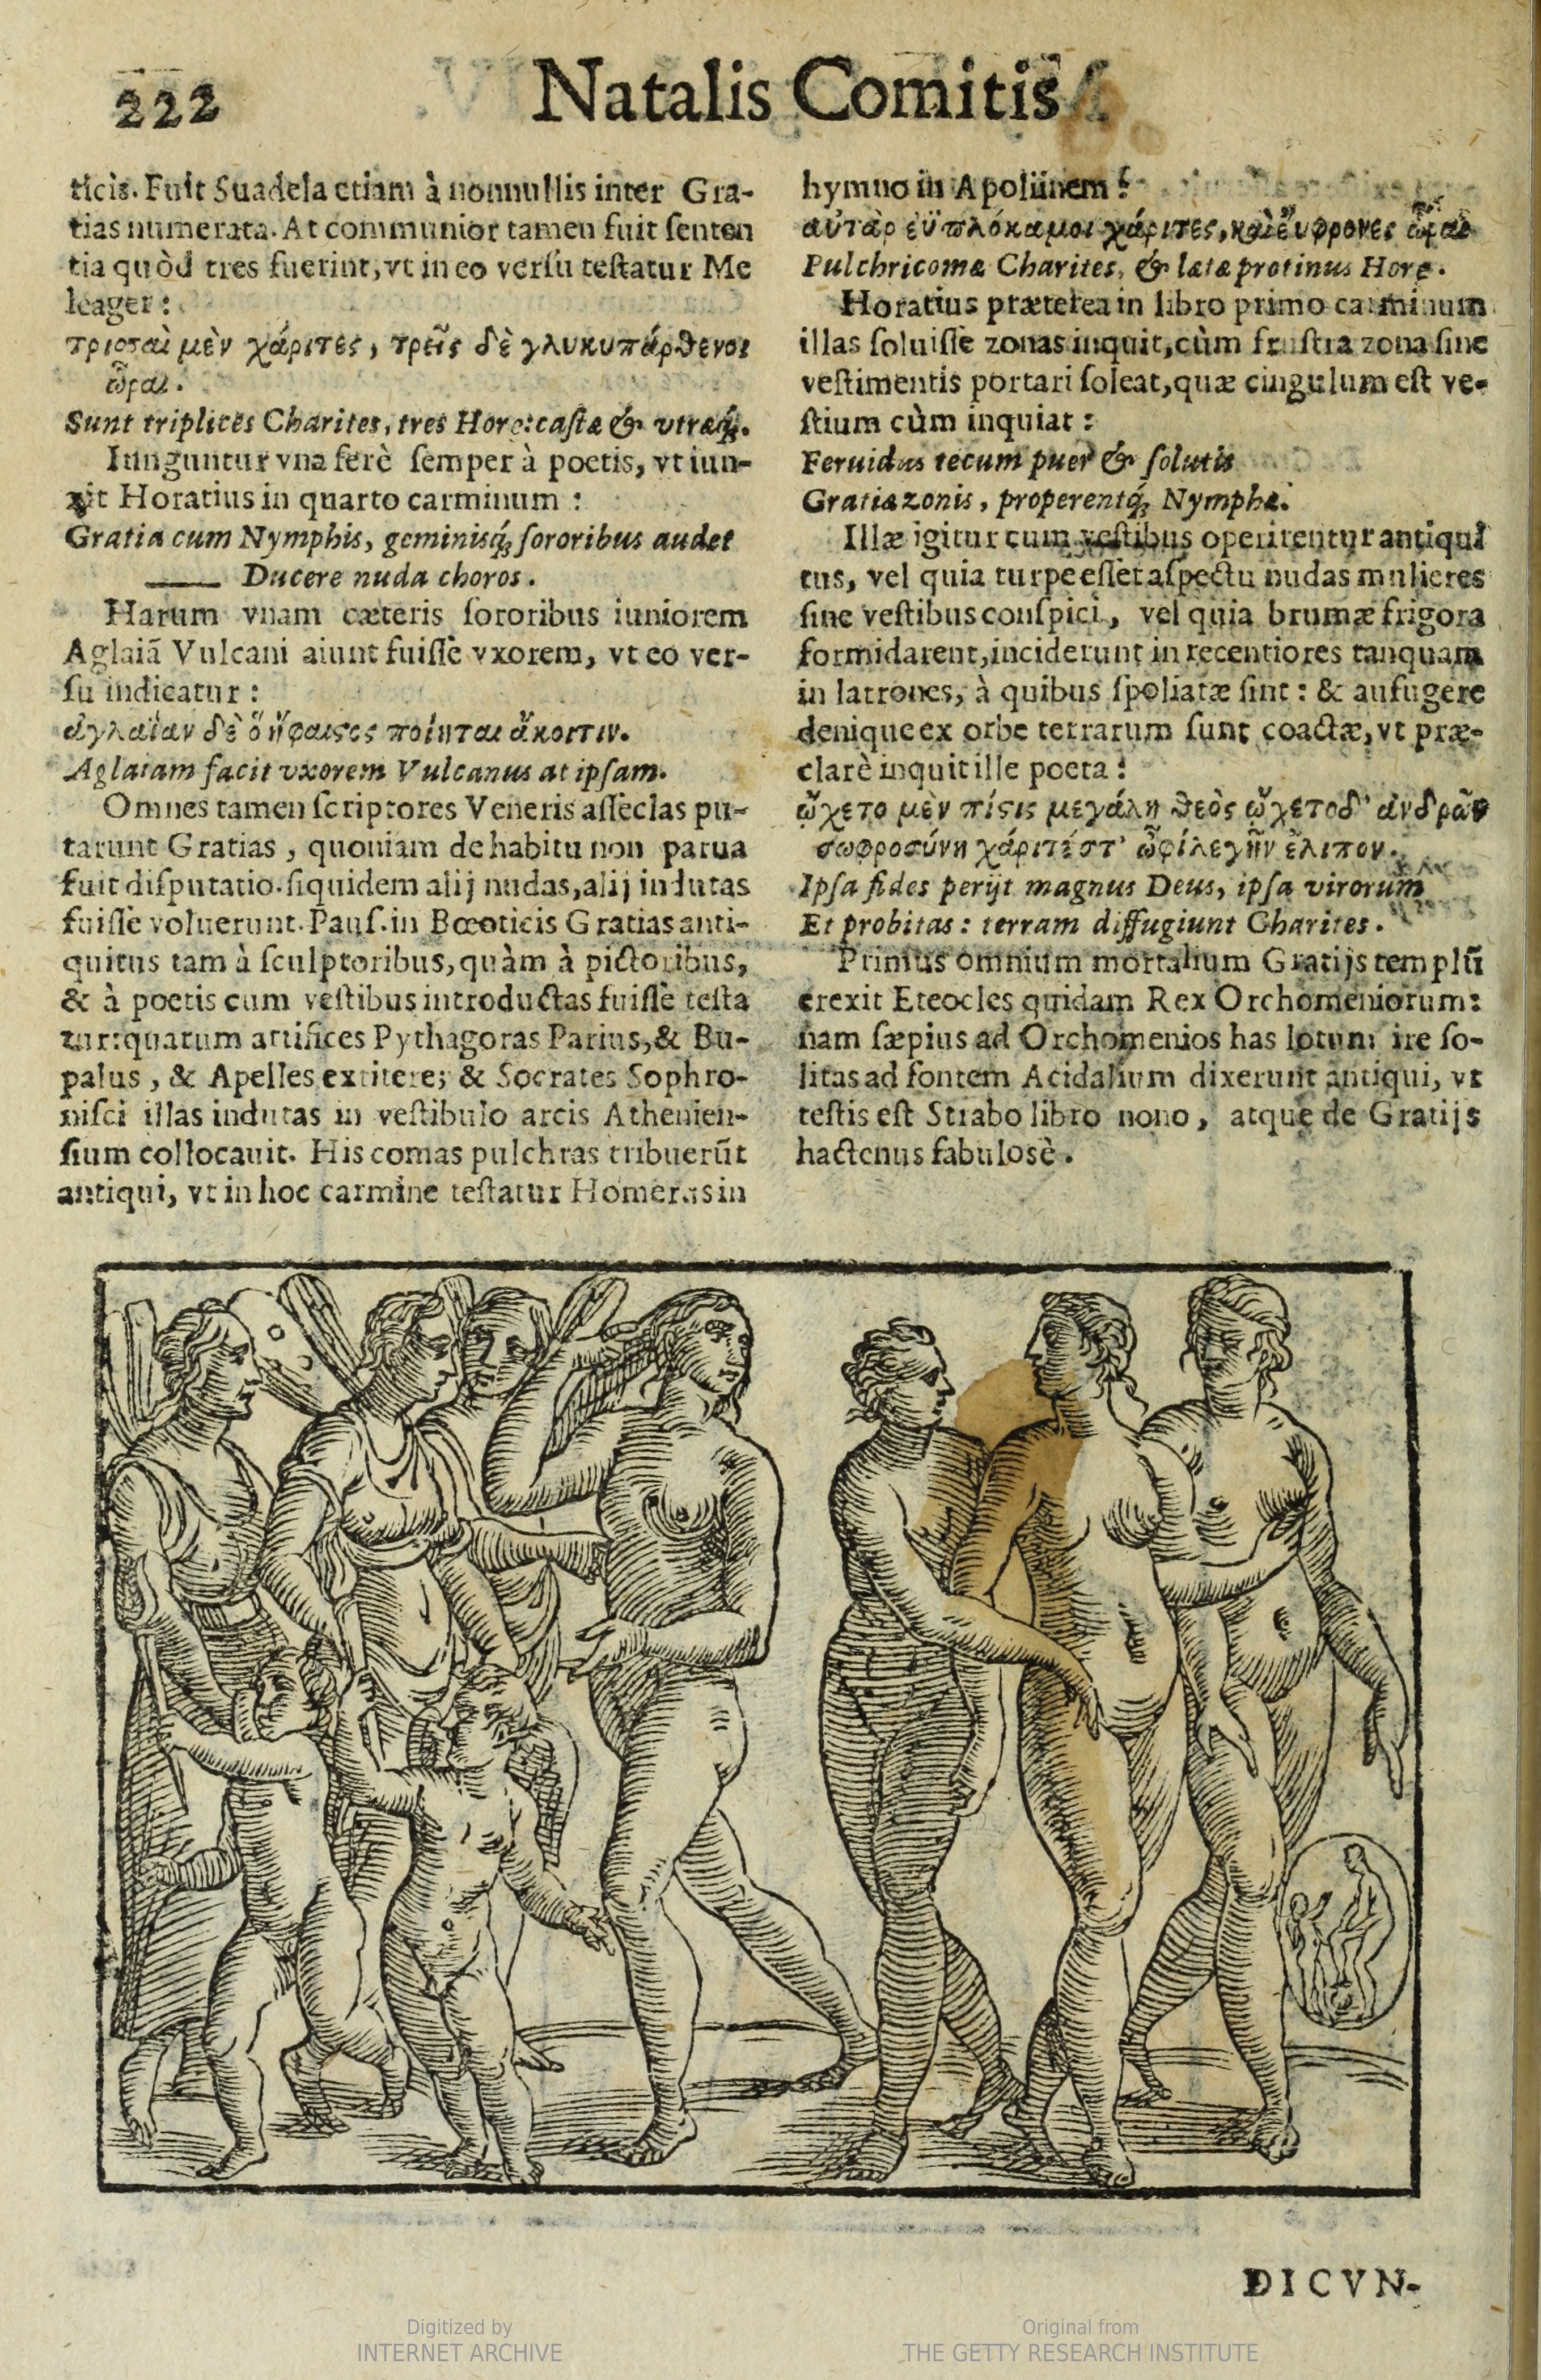 222
Natalis Comitis
ticis. Fuit Suadela etiam à nonnullis inter Gra-
tias numerata. At communior tamen fuit ſenten
tia quòd tres fuerint, vt in eo verſu teſtatur Me
leager:
τρισσαὶ μὲν χάριτες, τρεῖς δὲ γλυκυπάρθενοι
ὧραι.
Sunt triplices Charites, tres Horę: caſtæ & vtræq́;.
Iunguntur vna ferè ſemper à poetis, vt iun-
xit Horatius in quarto carminum:
Gratia cum Nymphis, geminisq́; ſororibus audet
Ducere nuda choros.
Harum vnam cæteris ſororibus iuniorem
Aglaiã Vulcani aiunt fuiſſe vxorem, vt eo ver-
ſu indicatur:
ἀγλαΐαν δὲ ὅ ἥφαιϛος ποίηται ἄκοιτιν.
Aglaiam facit vxorem Vulcanus at ipſam.
Omnes tamen ſcriptores Veneris aſſeclas pu-
tarunt Gratias, quoniam de habitu non parua
fuit diſputatio. ſiquidem alij nudas, alij indutas
fuiſſe voluerunt. Pauſ. in Bœoticis Gratias anti-
quitus tam à ſculptoribus, quàm à pictoribus,
& à poetis cum veſtibus introductas fuiſſe teſta
tur: quarum artifices Pythagoras Parius, & Bu-
palus, & Apelles extitere; & Socrates Sophro-
niſci illas indutas in veſtibulo arcis Athenien-
ſium collocauit. His comas pulchras tribuerũt
antiqui, vt in hoc carmine teſtatur Homerus in
hymno in Apollinem:
αὐτὰρ ἐϋπλόκαμοι χάριτες, καὶ ἔυφρονες ὧραι
Pulchricomæ Charites, & lætæ protinus Horę.
Horatius præterea in libro primo carminum
illas ſoluiſſe zonas inquit, cùm fruſtra zona ſine
veſtimentis portari ſoleat, quæ cingulum eſt ve-
ſtium cùm inquiat:
Feruidus tecum puer & ſolutis
Gratiæ zonis, properentq́; Nymphæ.
Illæ igitur cum veſtibus operirentur antiqui
tus, vel quia turpe eſſet aſpectu nudas mulieres
ſine veſtibus conſpici, vel quia brumæ frigora
formidarent, inciderunt in recentiores tanquam
in latrones, à quibus ſpoliatæ ſint: & aufugere
denique ex orbe terrarum ſunt coactæ, vt præ-
clarè inquit ille poeta:
ᾤχετο μὲν πίϛις μεγάλη θεὸς ᾤχετο δ' ἀνδρῶν
σωφροσύνη χάριτές τ' ὦ φίλε γῆν ἔλιπον.
Ipſa fides perijt magnus Deus, ipſa virorum
Et probitas: terram diffugiunt Charites.
Primus omnium mortalium Gratijs templũ
erexit Eteocles quidam Rex Orchomeniorum:
nam ſæpius ad Orchomenios has lotum ire ſo-
litas ad fontem Acidalium dixerunt antiqui, vt
teſtis eſt Strabo libro nono, atque de Gratijs
hactenus fabulosè.
DICVN-
Digitized by
INTERNET ARCHIVE
Original from
THE GETTY RESEARCH INSTITUTE